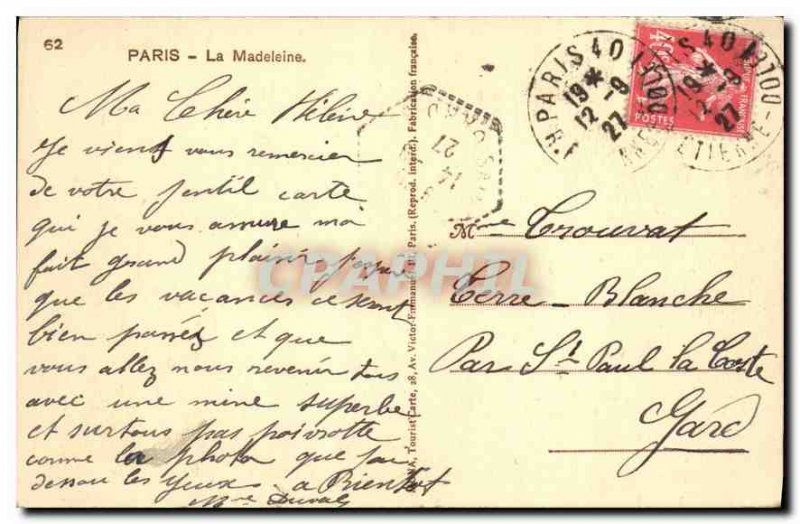 62
PARIS - La Madeleine.
Ma Chère Hélène
Je viens vous remercier
de votre gentil carte
qui je vous assure m'a
fait grand plaisir j'espère
que les vacances ce sont
bien passéz et que
vous allez nous revenir tous
avec une mine superbe
et surtous pas poivrotte
comme la photo que j'ai
dessou les yeux a Bientôt
Mme Duval
Tourist Carte, 28, Av. Victor-Emmanuel III, Paris. (Reprod. interd.) Fabrication française.
CPAPHIL
R.P PARIS 40
19 * 12 -9 27
40
19 * 12 -9 27
ETIENNE
POSTES
14-9
27
Mme Crouvat
Terre-Blanche
Par St Paul la Coste
Gard